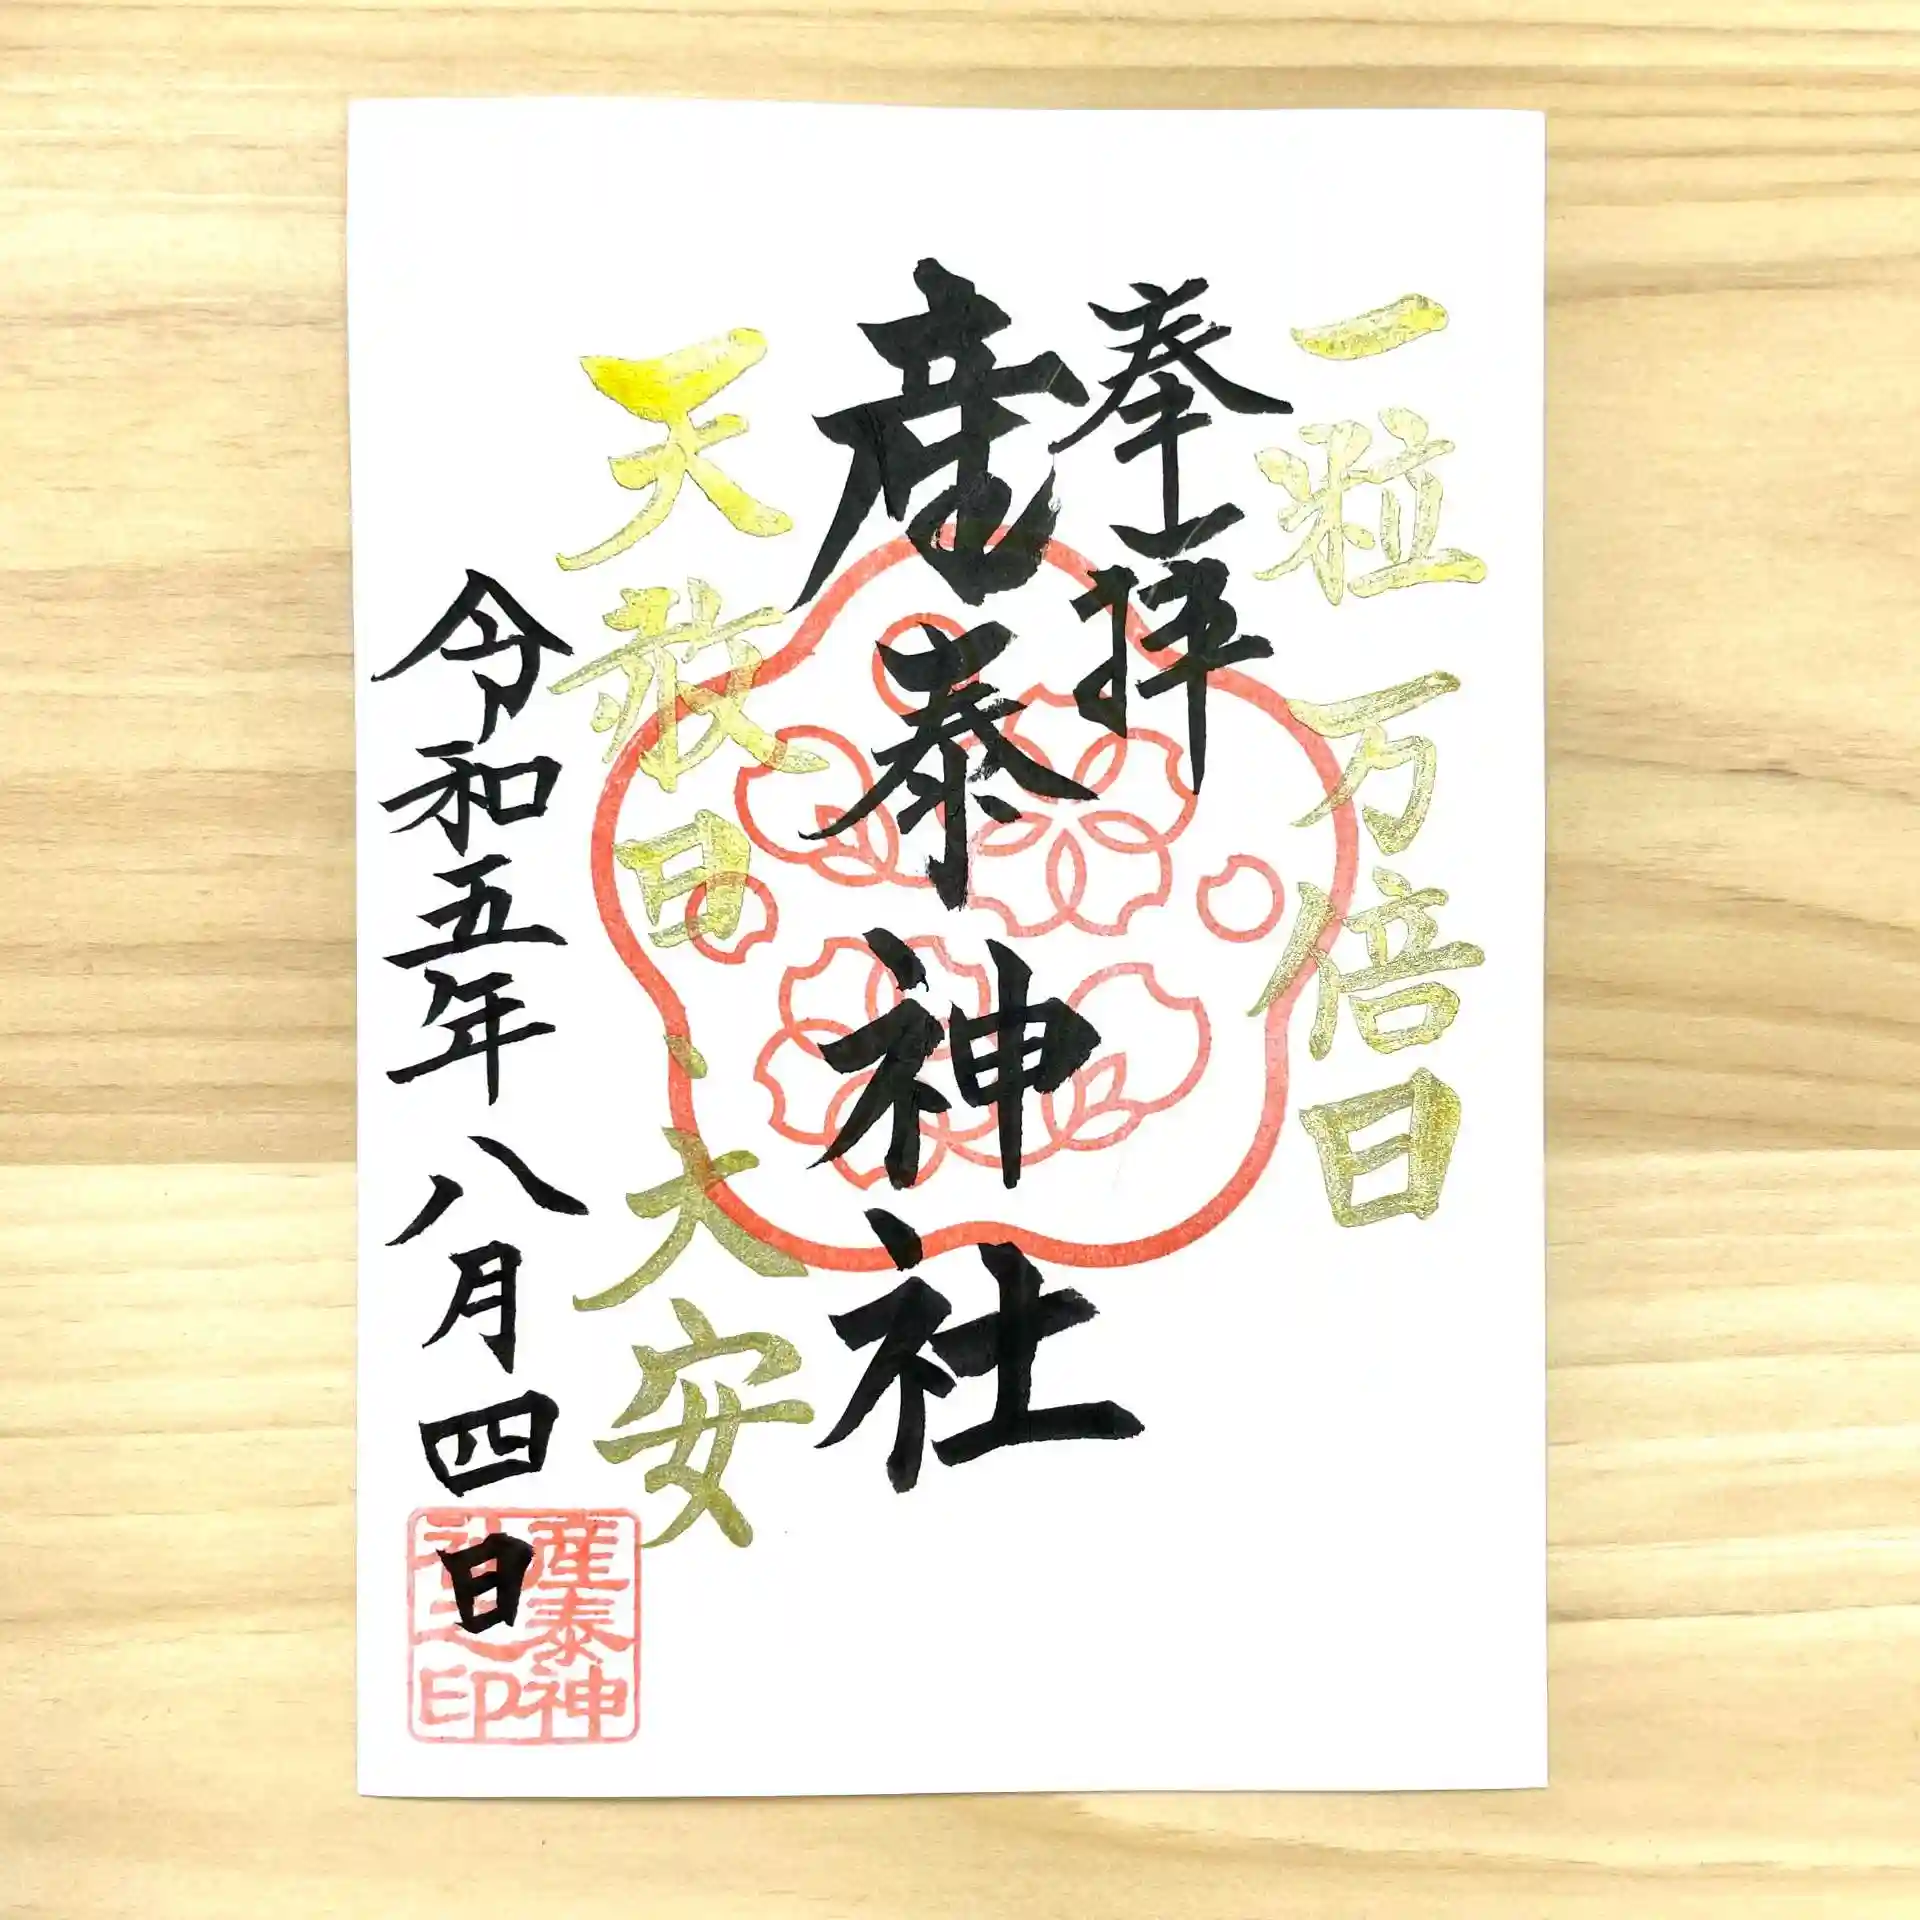 一粒万倍日
奉拝
産泰神社
天赦日、大安
令和五年八月四日
産泰神
社之印